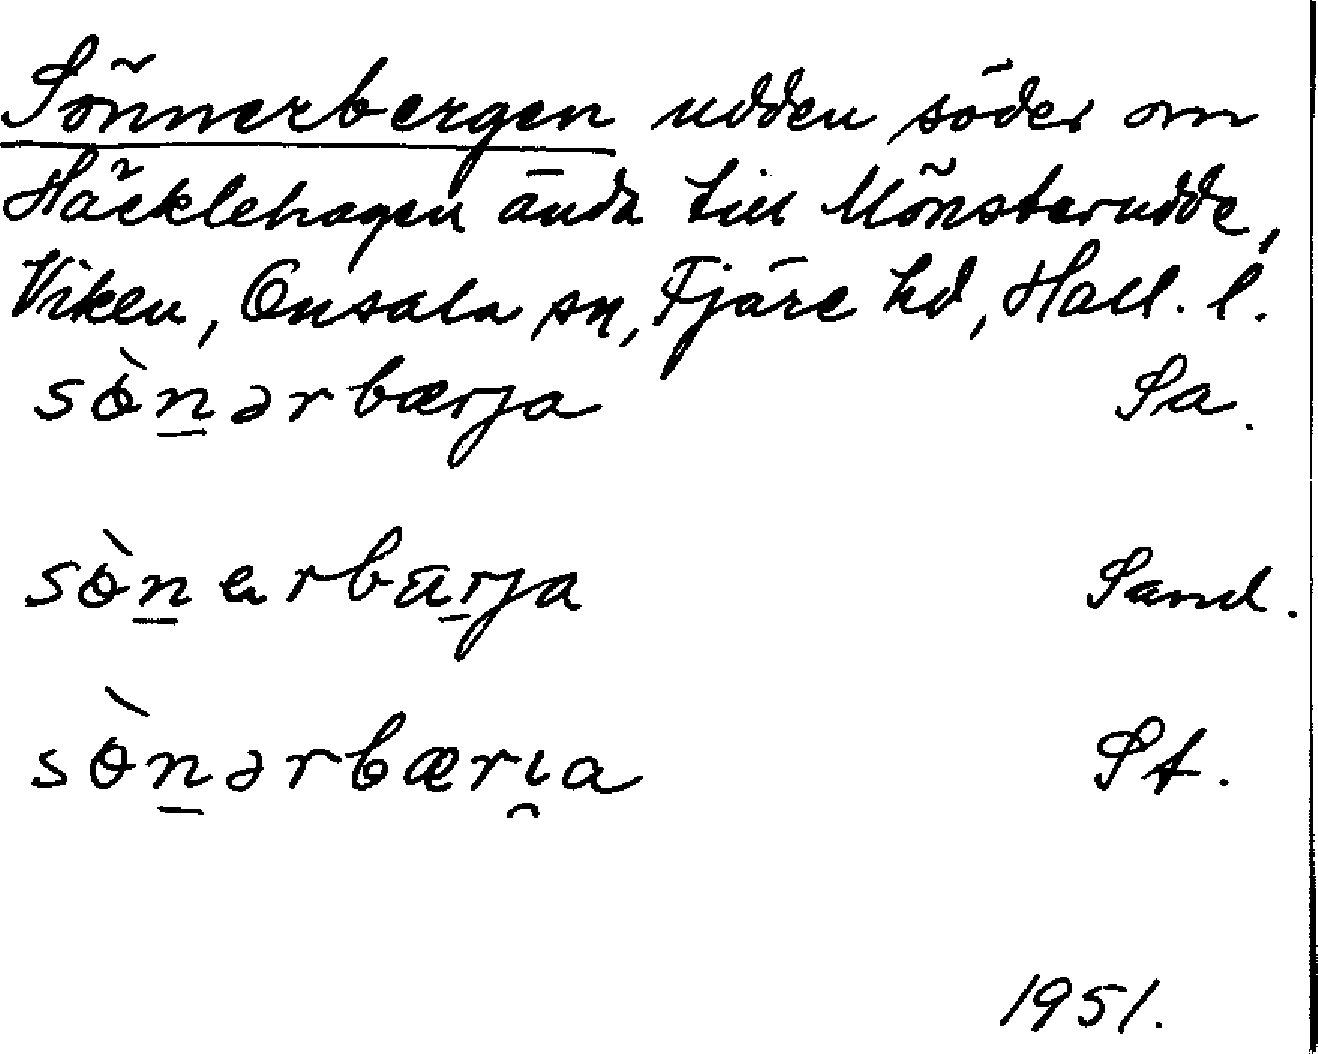 Sönnerbergen udden söder om
Häcklehagen ända till Mönsterudde,
Viken, Onsala sn, Fjäre hd, Hall. l.
sɵ̀n̲ərbærja Sa.
sɵ̀n̲erbar̲ja Sand.
sɵ̀n̲ərbærı̯a St.
1951.